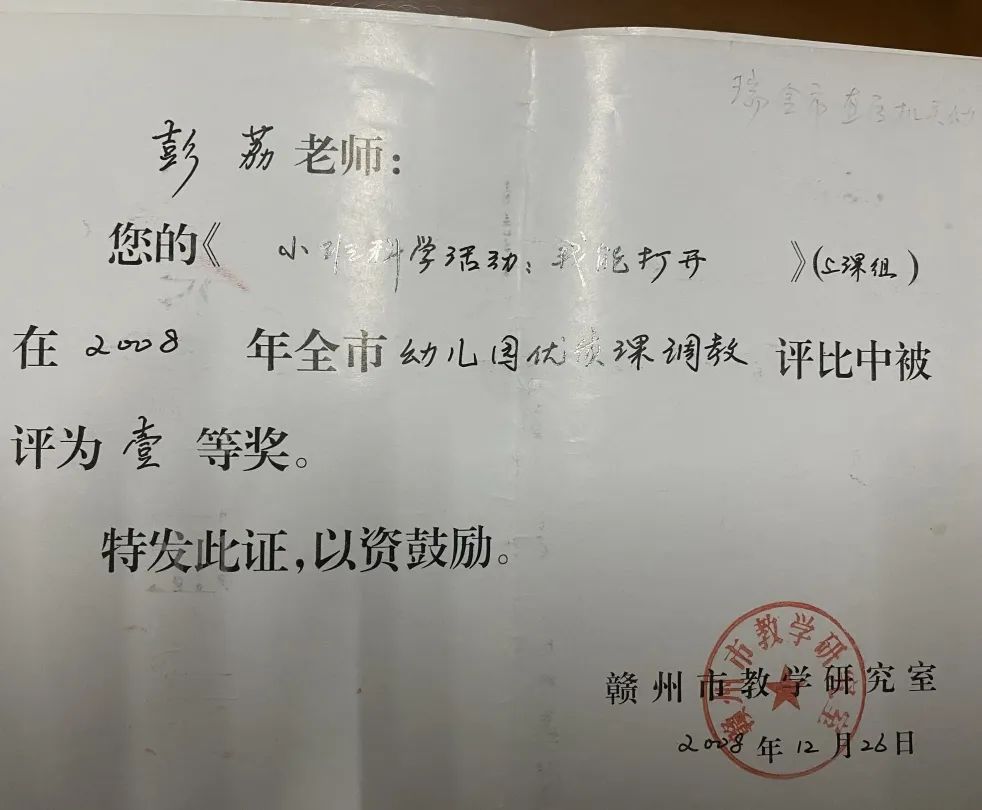 瑞金市直属机关幼
彭荔老师：
您的《小班科学活动：我能打开》（上课组）
在2008年全市幼儿园优质课调教评比中被
评为壹等奖。
特发此证，以资鼓励。
赣州市教学研究室
2008年12月26日
赣州市教学研究室